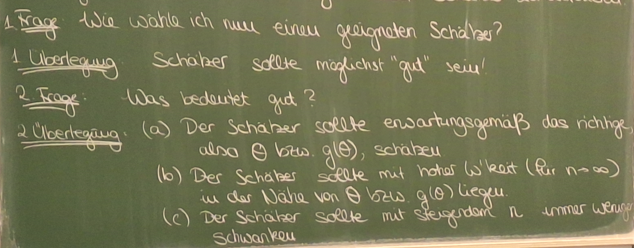 1. Frage: Wie wähle ich nun einen geeigneten Schätzer?
1 Überlegung: Schätzer sollte möglichst "gut" sein!
2. Frage: Was bedeutet gut?
2 Überlegung: (a) Der Schätzer sollte erwartungsgemäß das richtige,
also θ bzw. g(θ), schätzen
(b) Der Schätzer sollte mit hoher W'keit (für n→∞)
in der Nähe von θ bzw. g(θ) liegen.
(c) Der Schätzer sollte mit steigendem n immer weniger
schwanken